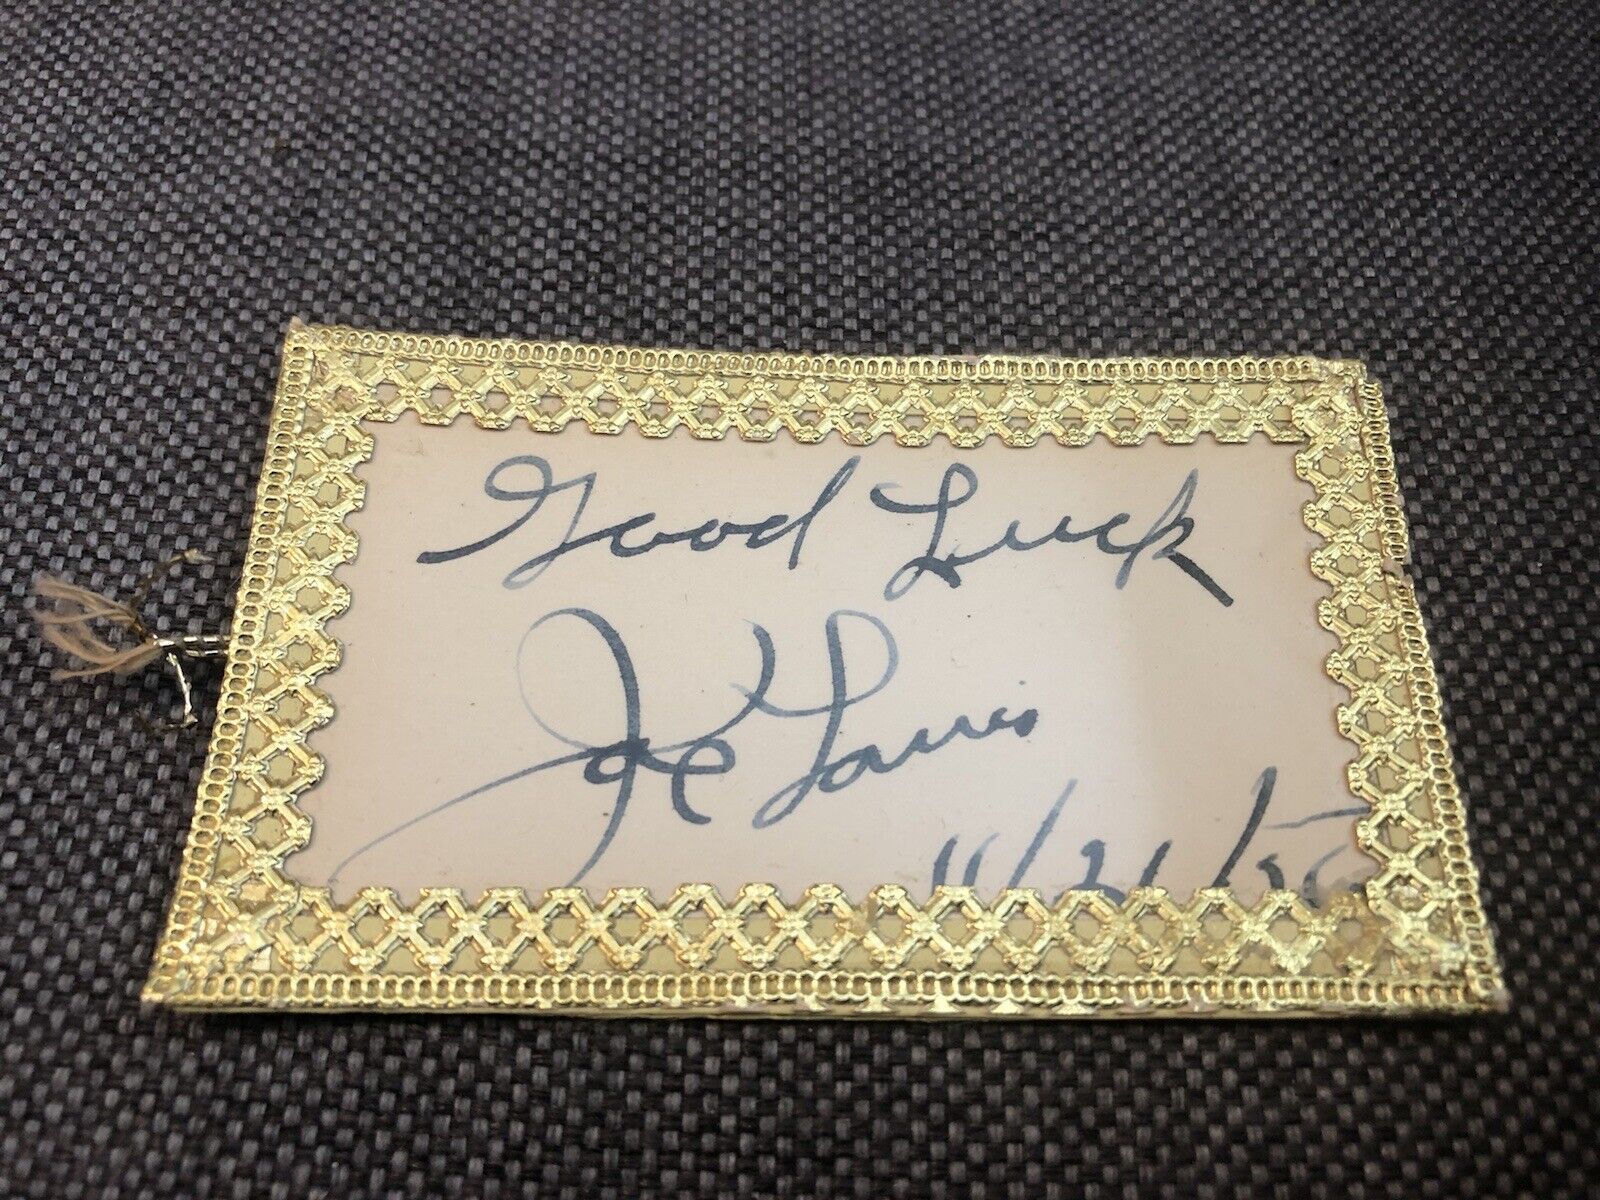 Good Luck
Joe Louis
11/21/50